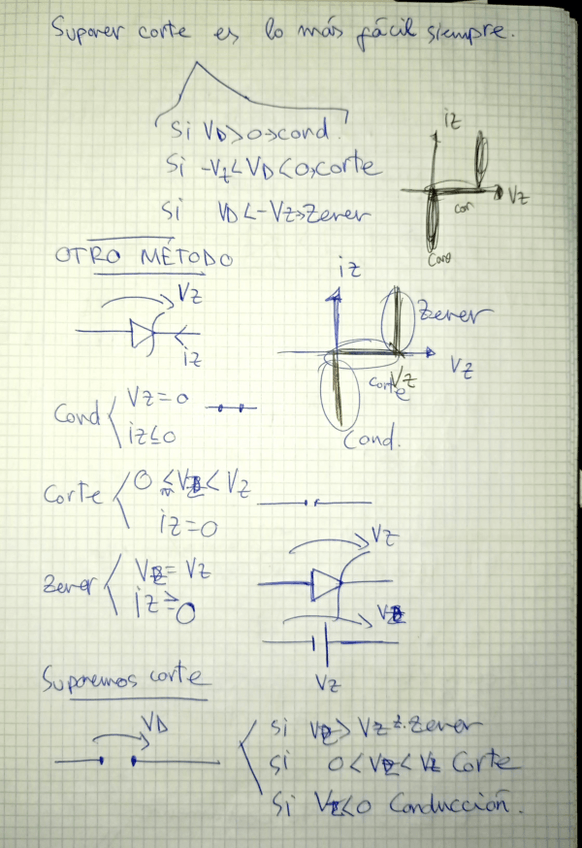 Suponer corte es lo más fácil siempre.
Si VD>0→cond.
Si -Vz<VD<0→corte
Si VD<-Vz→Zener
iz
Vz
cor
Cond
OTRO MÉTODO
Vz
iz
iz
Zener
Vz
corte
Vz
Cond.
Cond { Vz=0
iz≤0
Corte { 0 ≤ Vz < Vz
iz=0
Zener { Vz = Vz
iz≥0
Vz
Vz
Vz
Suponemos corte
VD
Si Vz > Vz Zener
Si 0<Vz<Vz Corte
Si Vz<0 Conducción.